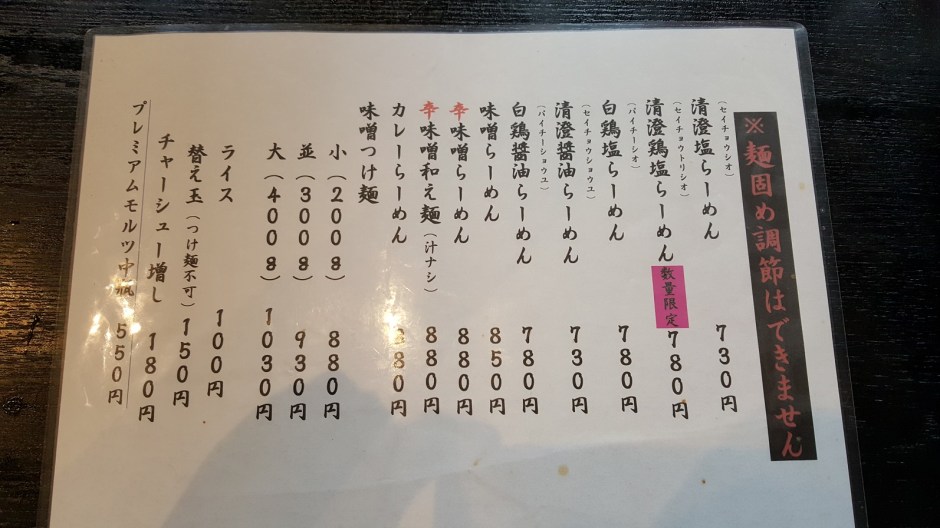 ※麺固め調節はできません
清澄塩らーめん 730円
(セイチョウシオ)
清澄鶏塩らーめん 数量限定 780円
(セイチョウトリシオ)
白鶏塩らーめん 780円
(パイチーシオ)
清澄醤油らーめん 730円
(セイチョウショウユ)
白鶏醤油らーめん 780円
(パイチーショウユ)
味噌らーめん 850円
辛味噌らーめん 880円
辛味噌和え麺(汁ナシ) 880円
カレーらーめん 880円
味噌つけ麺
小(200g) 880円
並(300g) 930円
大(400g) 1030円
ライス 100円
替え玉(つけ麺不可) 150円
チャーシュー増し 180円
プレミアムモルツ中瓶 550円